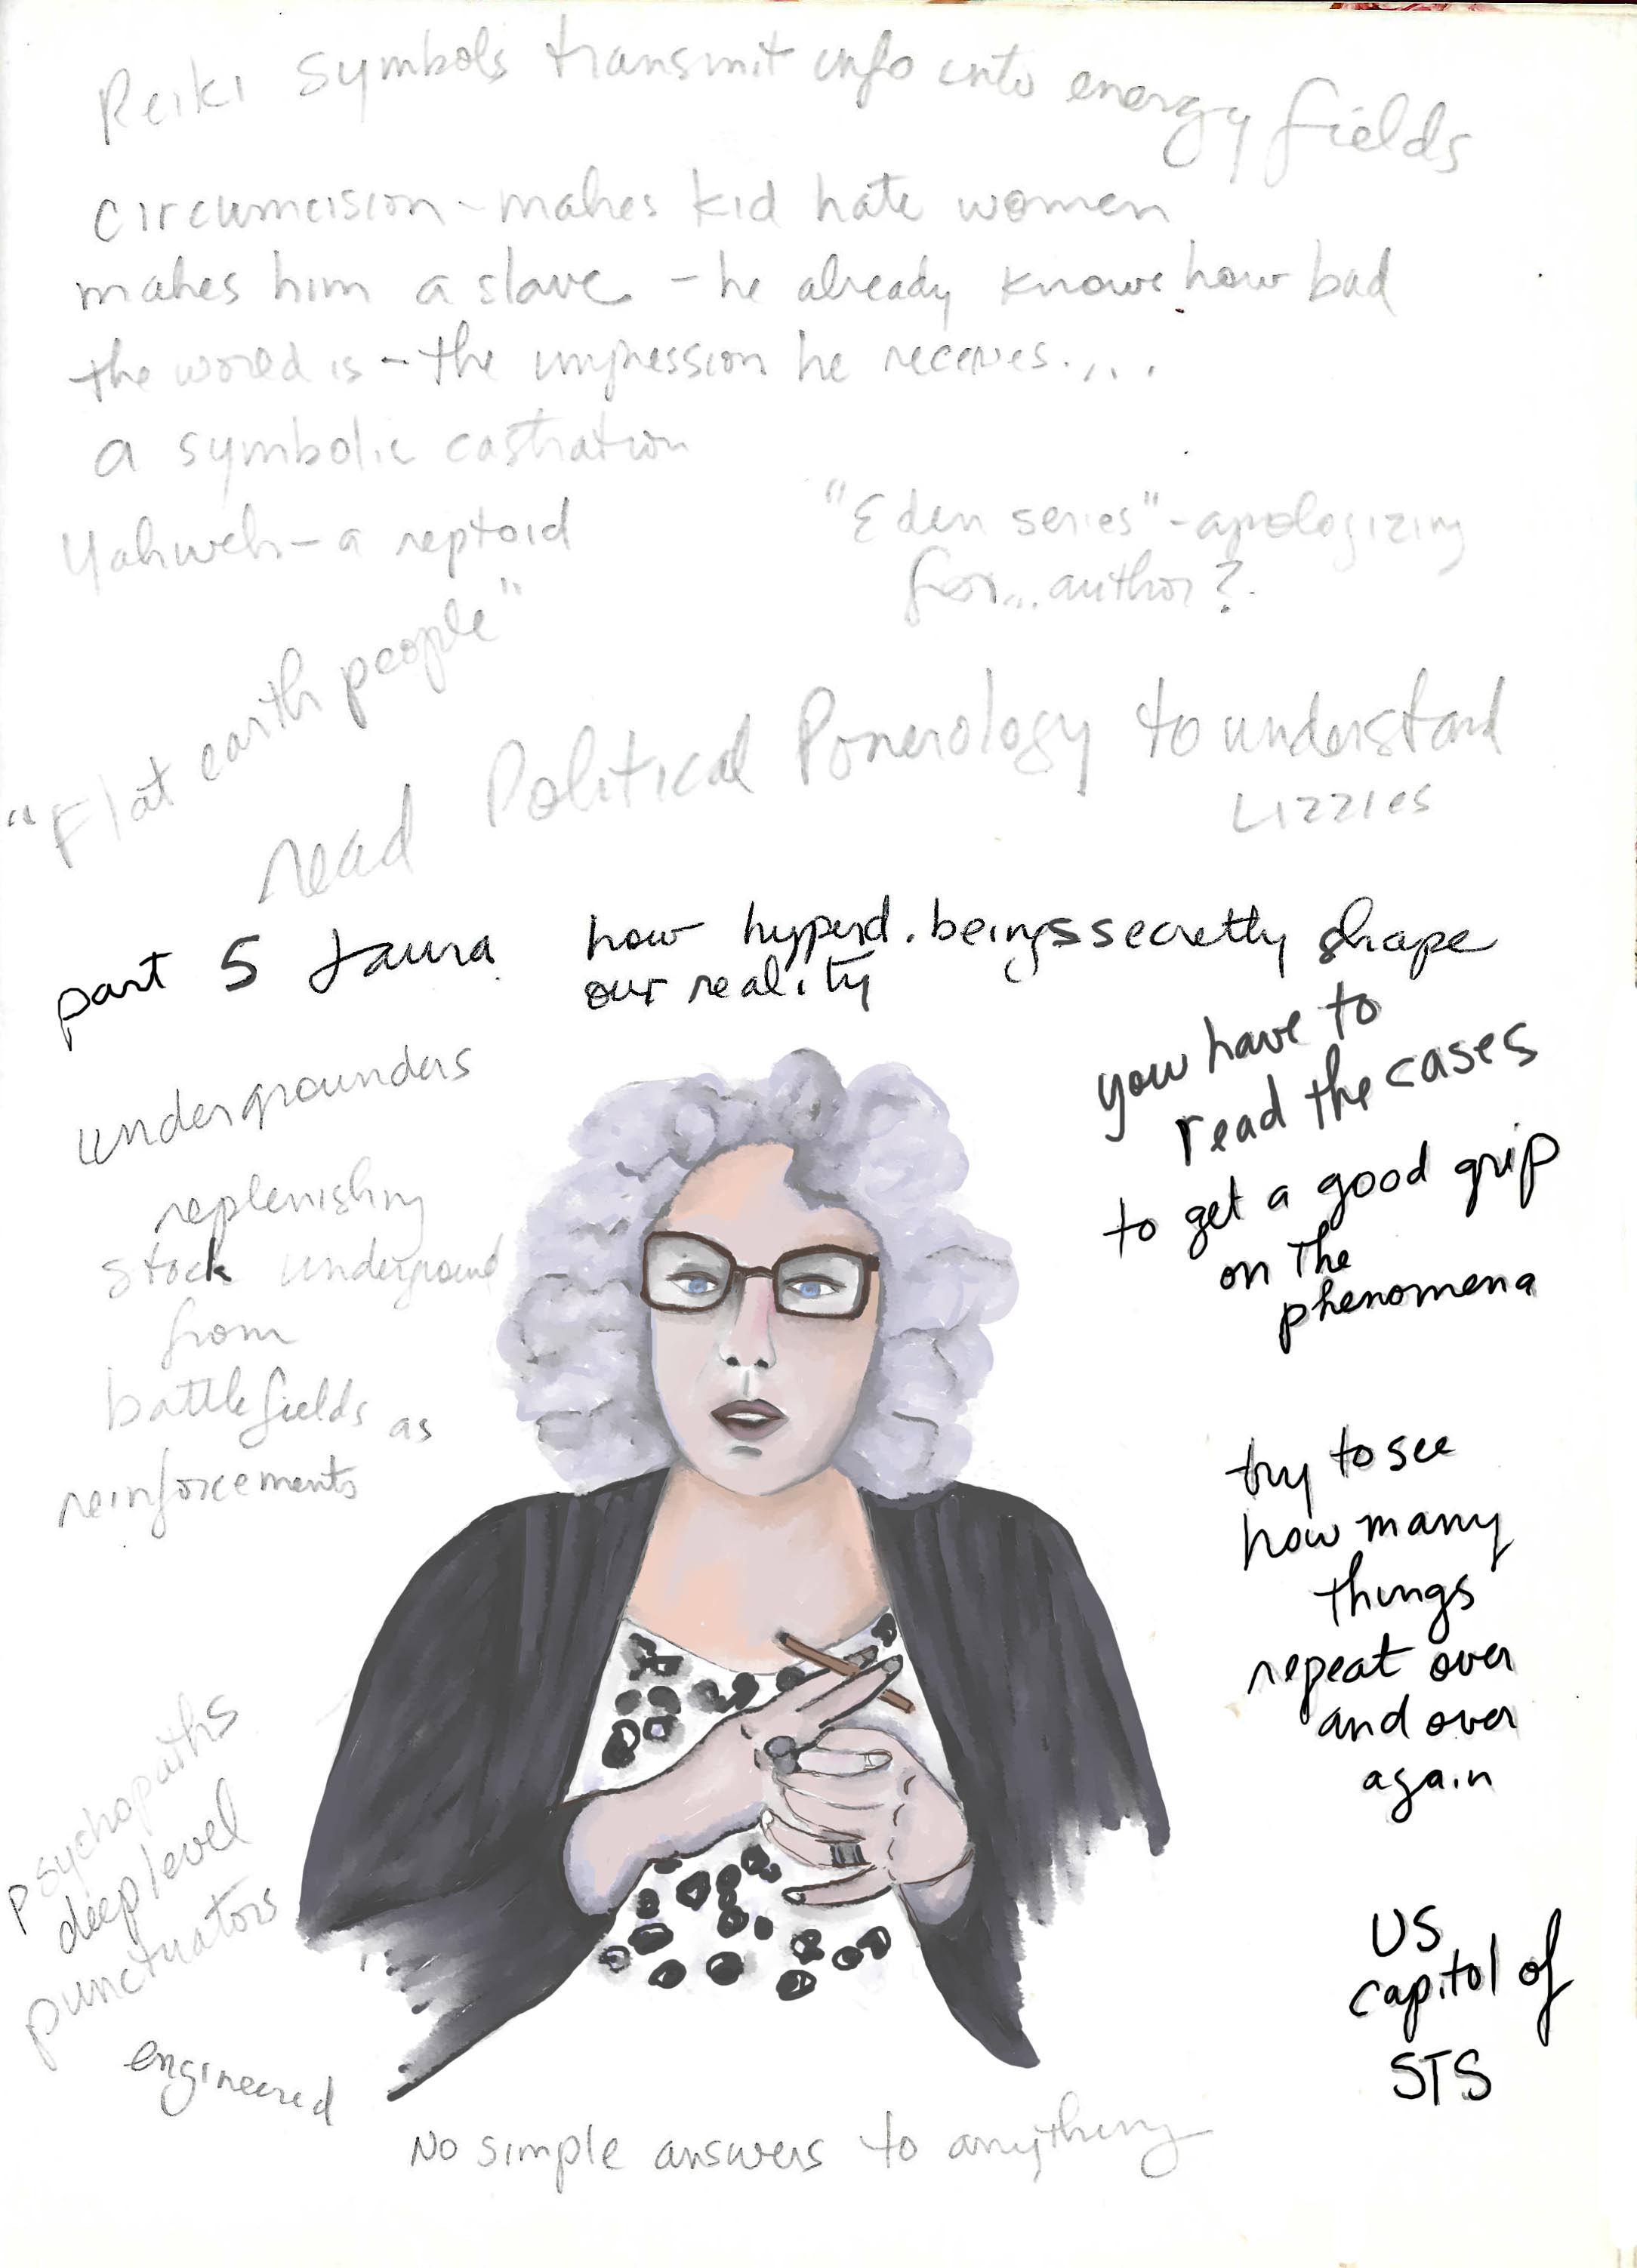 Reiki symbols transmit info into energy fields
circumcision - makes kid hate women
makes him a slave - he already knows how bad
the world is - the impression he receives....
a symbolic castration
Yahweh - a reptoid
"Eden series" - apologizing
for... author?
"Flat earth people"
read Political Ponerology to understand
Lizzies
part 5 Laura
how hyperd. beings secretly shape
our reality
you have to
read the cases
to get a good grip
on the
phenomena
undergrounders
replenishing
stock underground
from
battlefields as
reinforcements
try to see
how many
things
repeat over
and over
again
psychopaths
deep level
punctuators
engineered
US
capitol of
STS
No simple answers to anything